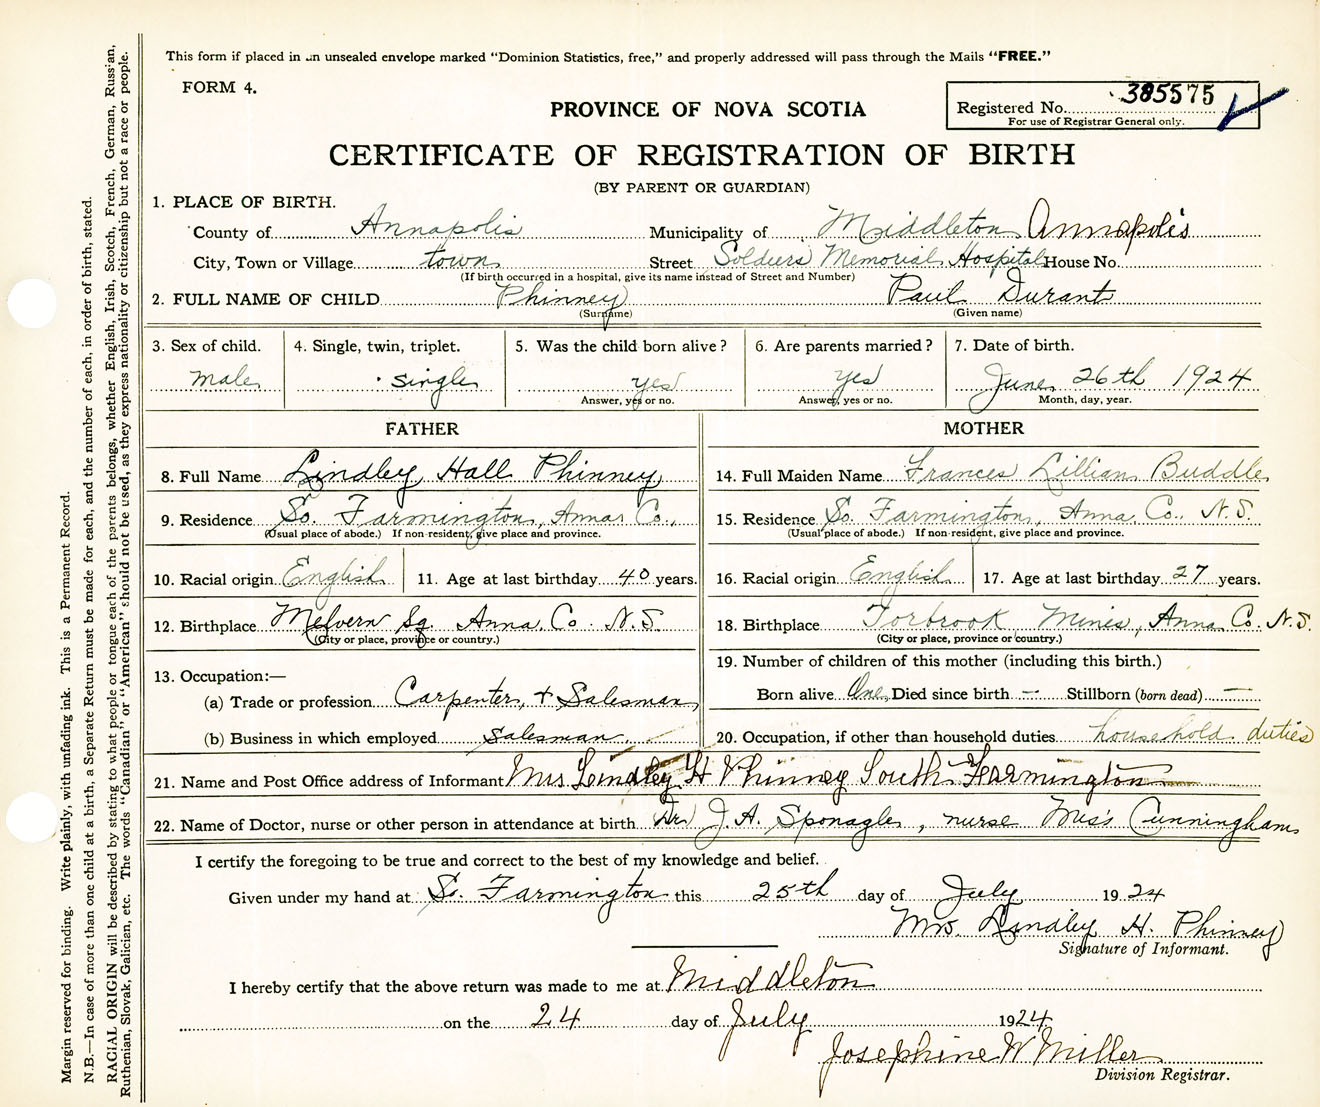 This form if placed in an unsealed envelope marked “Dominion Statistics, free,” and properly addressed will pass through the Mails “FREE.”
FORM 4.
Registered No. 385575
For use of Registrar General only.
PROVINCE OF NOVA SCOTIA
CERTIFICATE OF REGISTRATION OF BIRTH
(BY PARENT OR GUARDIAN)
1. PLACE OF BIRTH.
County of Annapolis Municipality of Middleton Annapolis
City, Town or Village town Street Soldiers Memorial Hospital House No.
(If birth occurred in a hospital, give its name instead of Street and Number)
2. FULL NAME OF CHILD Phinney Paul Durant
(Surname) (Given name)
3. Sex of child. 4. Single, twin, triplet. 5. Was the child born alive? 6. Are parents married? 7. Date of birth.
male single yes yes June 26th 1924
Answer, yes or no. Answer, yes or no. Month, day, year.
FATHER MOTHER
8. Full Name Lindley Hall Phinney 14. Full Maiden Name Frances Lillian Buddle
9. Residence So. Farmington, Annas Co., 15. Residence So. Farmington, Anna. Co. N.S.
(Usual place of abode.) If non-resident, give place and province. (Usual place of abode.) If non-resident, give place and province.
10. Racial origin English 11. Age at last birthday 40 years. 16. Racial origin English 17. Age at last birthday 27 years.
12. Birthplace Melvern Sq. Anna. Co. N.S. 18. Birthplace Torbrook Mines, Anna. Co. N.S.
(City or place, province or country.) (City or place, province or country.)
13. Occupation:— 19. Number of children of this mother (including this birth.)
(a) Trade or profession Carpenter, + Salesman Born alive One Died since birth — Stillborn (born dead) —
(b) Business in which employed Salesman 20. Occupation, if other than household duties household duties
21. Name and Post Office address of Informant Mrs Lindley H Phinney South Farmington
22. Name of Doctor, nurse or other person in attendance at birth Dr. J. A. Sponagle, nurse Miss Cunningham
I certify the foregoing to be true and correct to the best of my knowledge and belief.
Given under my hand at So. Farmington this 25th day of July 1924
Mrs. Lindley H. Phinney
Signature of Informant.
I hereby certify that the above return was made to me at Middleton
on the 24 day of July 1924
Josephine W Miller
Division Registrar.
Margin reserved for binding. Write plainly, with unfading ink. This is a Permanent Record.
N.B.—In case of more than one child at a birth, a Separate Return must be made for each, and the number of each, in order of birth, stated.
RACIAL ORIGIN will be described by stating to what people or tongue each of the parents belongs, whether English, Irish, Scotch, French, German, Russian,
Ruthenian, Slovak, Galician, etc. The words “Canadian” or “American” should not be used, as they express nationality or citizenship but not a race or people.